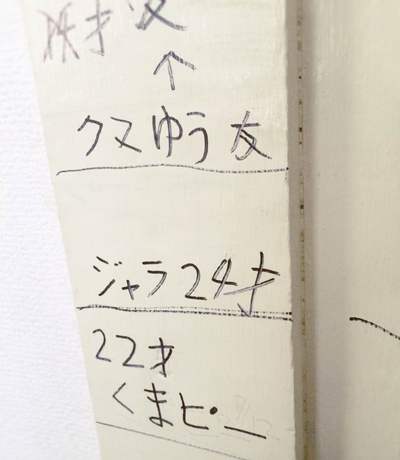 ↑
クマゆう友
ジャラ24才
22才
くまピー